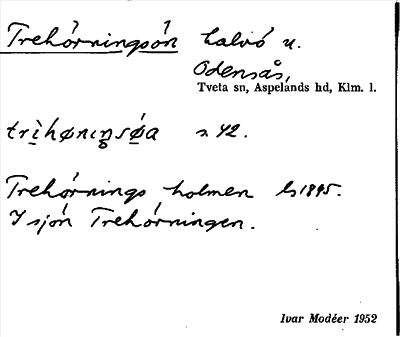 Trehörningsön halvö u.
Odensås,
Tveta sn, Aspelands hd, Klm. l.
trìhøṇıŋsø̀a s 42.
Trehörnings holmen Ls 1895.
I sjön Trehörningen.
Ivar Modéer 1952